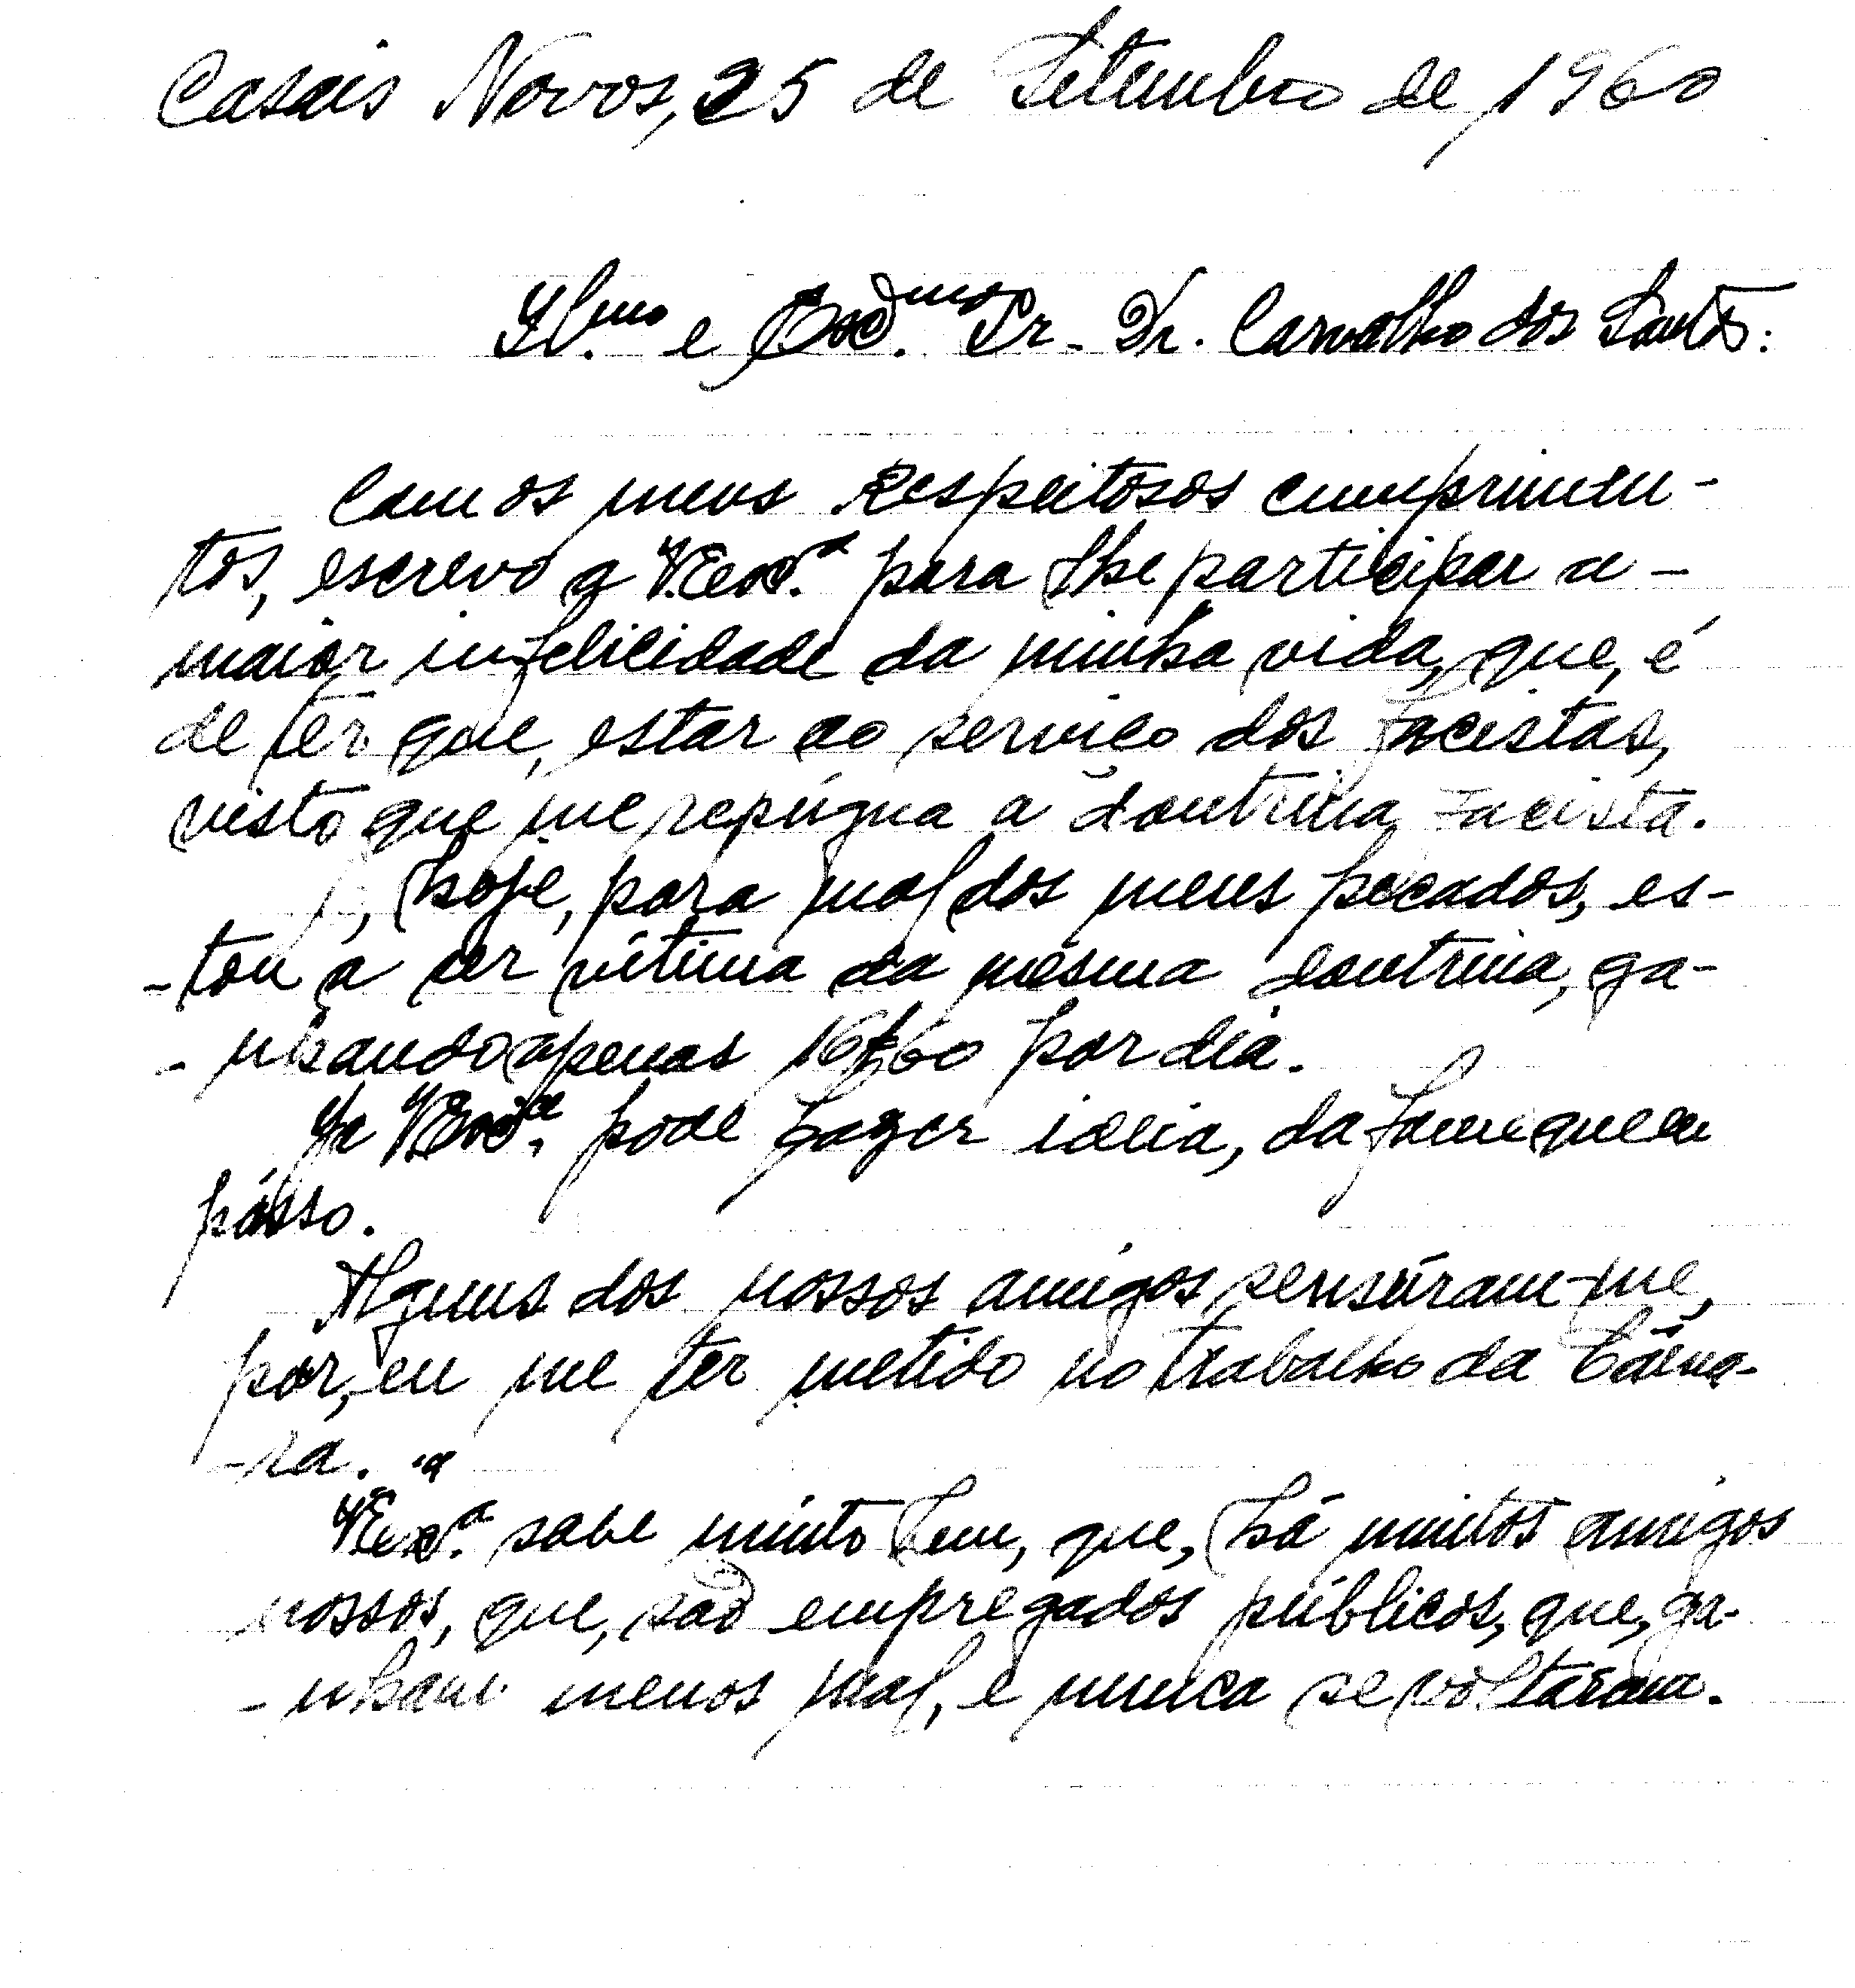 Casais Novos, 25 de Setembro de 1960
Il.mo e Exc.mo Sr. Dr. Carvalho dos Santos:
Com os meus Respeitosos cumprimen-
tos, escrevo a V.Exc.a para lhe participar a-
maior infelicidade da minha vida, que, é
de ter que, estar ao serviço dos facistas,
visto que me repúgna a doutrina facista.
, hoje, para mal dos meus pecados, es-
-tou a ser vítima da mesma doutrina, ga-
-nhando apenas 16$60 por dia.
Ja V.Exc.a pode fazer ideia, da fome que eu
pásso.
Alguns dos nossos amigos sensúram-me,
por, eu me ter metido no trabalho da Câma-
-ra.
V.Exc.a sabe muito bem, que, há muitos amigos
nossos, que, são empregados públicos, que, ga-
-nham menos mal, e nunca se voltaram.